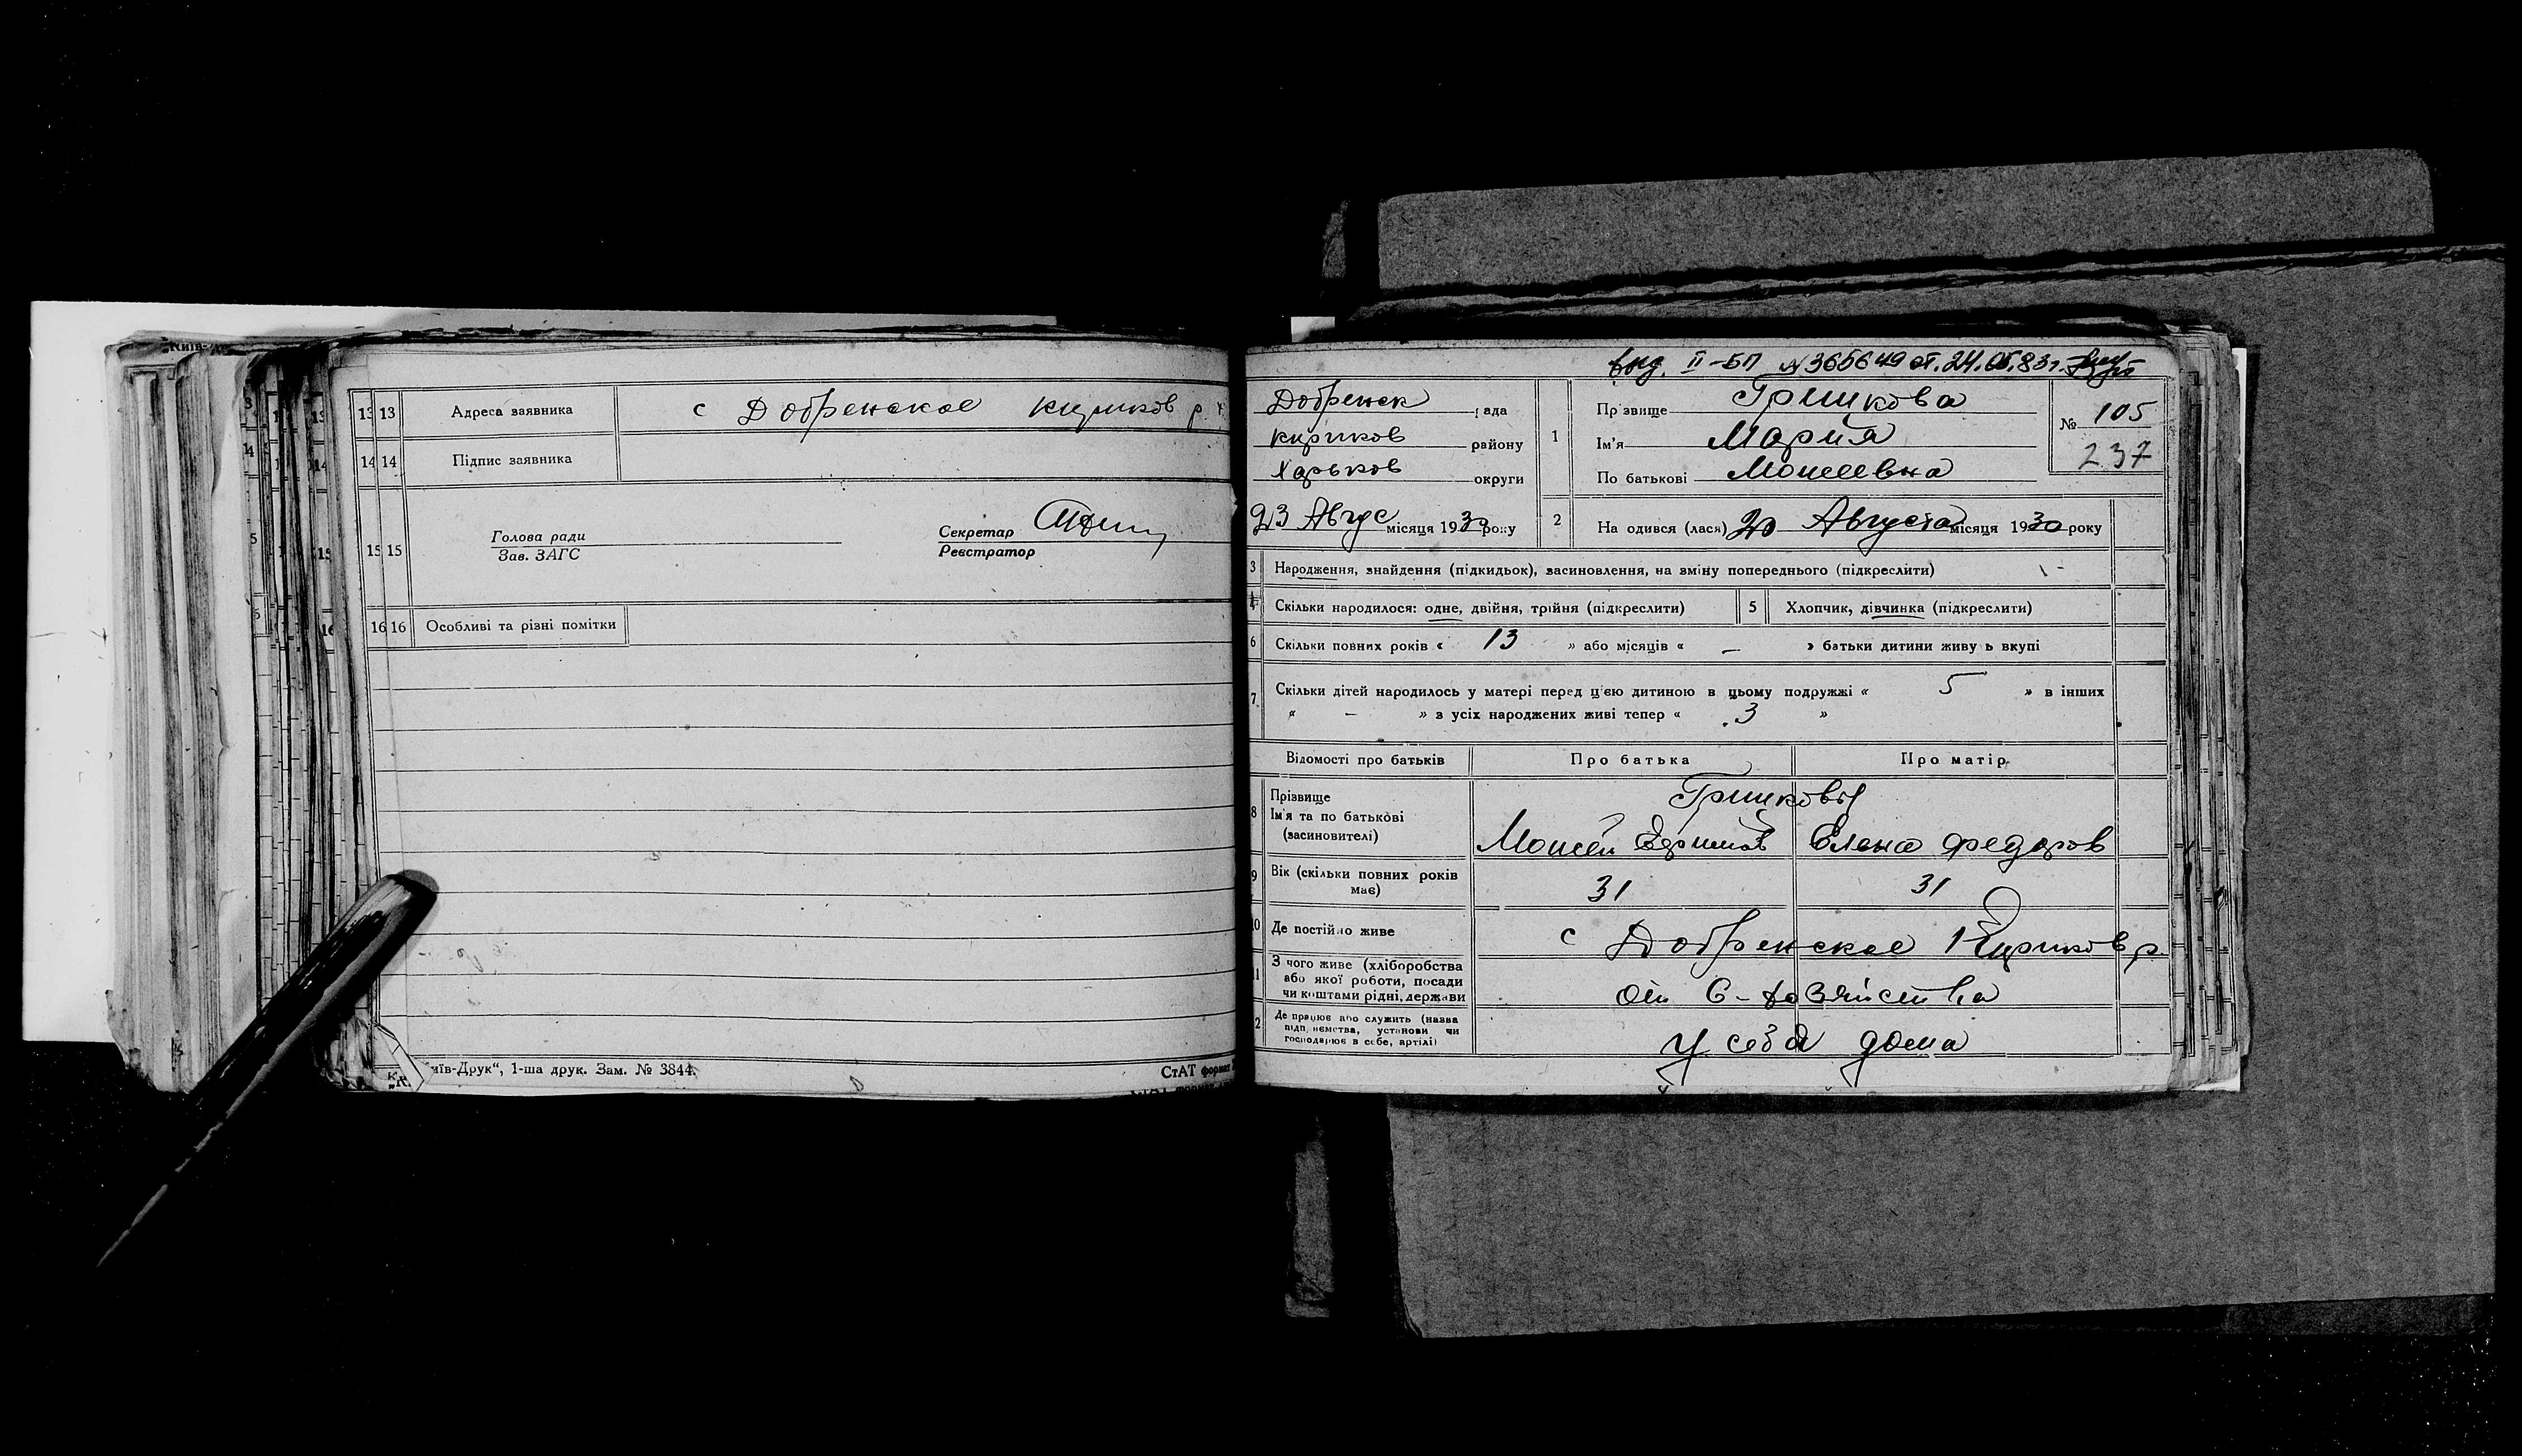 13 13 Адреса заявника с Добренское кириков р.
14 14 Підпис заявника
15 15 Голова ради
Зав. ЗАГС
Секретар
Реєстратор
16 16 Особливі та різні помітки
иїв-Друк“, 1-ша друк. Зам. № 3844.
СтАТ формат
выд. II-БП № 365649 от
Добренск рада
кириков району
Харьков округи
23 Авгус місяця 1930 року
1 Прізвище Гришкова
Ім'я Мария
По батькові Моисеевна
№ 105
237
2 На одився (лася) 20 Августа місяця 1930 року
3 Народження, знайдення (підкидьок), засиновлення, на зміну попереднього (підкреслити)
4 Скільки народилося: одне, двійня, трійня (підкреслити) 5 Хлопчик, дівчинка (підкреслити)
6 Скільки повних років « 13 » або місяців « – » батьки дитини живу ь вкупі
7 Скільки дітей народилось у матері перед цією дитиною в цьому подружжі « 5 » в інших
« – » з усіх народжених живі тепер « 3 »
Відомості про батьків Про батька Про матір
8 Прізвище
Ім'я та по батькові
(засиновителі)
Гришковы
Моисей Ефимов Елена Федоров
9 Вік (скільки повних років має) 31 31
10 Де постійно живе с Добренское Кириков р.
11 З чого живе (хліборобства
або якої роботи, посади
чи коштами рідні, держави
от С-хозяйства
12 Де працює або служить (назва
підп.иємства, установи чи
господарює в себе, артілі)
у себя дома